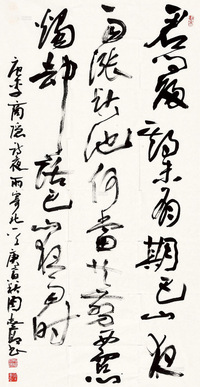 君问归期未有期巴山夜
雨涨秋池何当共剪西窗
烛却话巴山夜雨时
唐李商隐诗夜雨寄北一首庚寅秋周